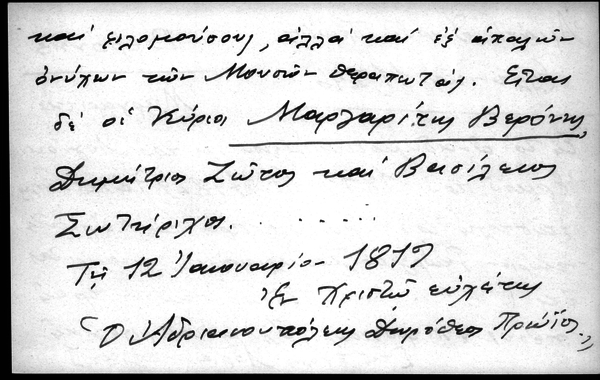 καί φιλομούσους, ἀλλά καί ἐξ ἁπαλῶν
ὀνύχων τῶν Μουσῶν θεραπευτάς. Εἶναι
δέ οἱ Κύριοι Μαργαρίτης Βερόνης,
Δημήτριος Ζῶτος καί Βασίλειος
Σωτήριχος. . . . . . .
Τῇ 12 Ἰανουαρίου 1819
ἐν Χριστῷ εὐχέτης
Ὁ Ἀδριανουπόλεως Δωρόθεος Πρώϊος.